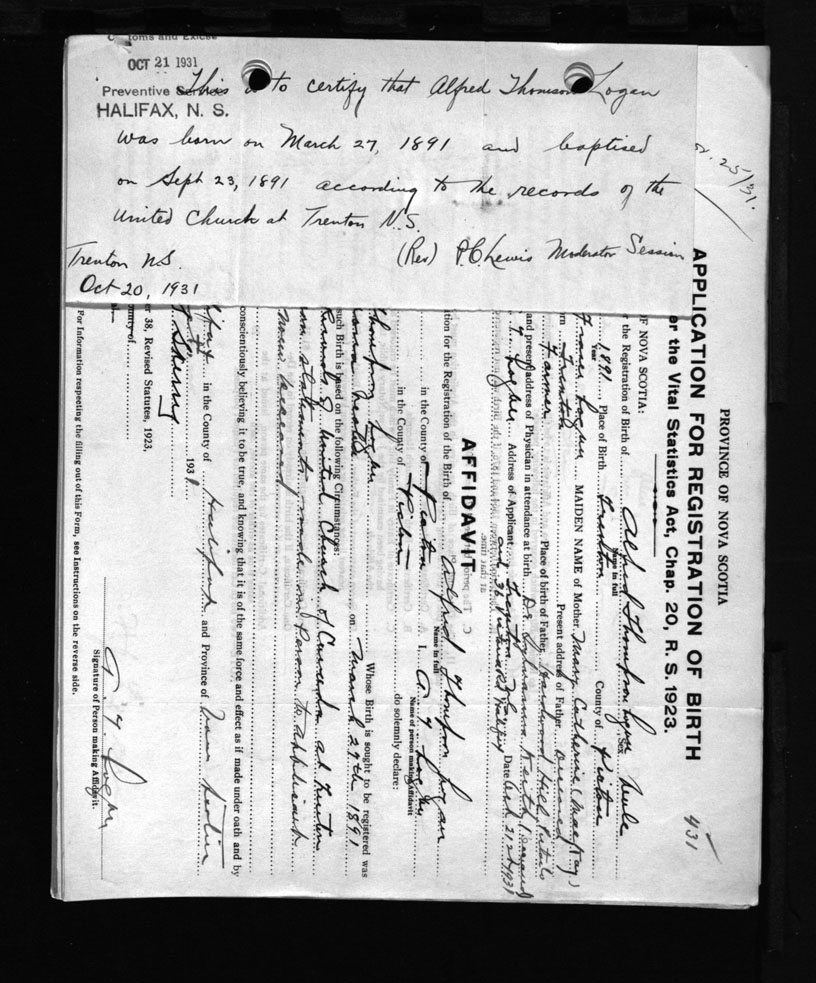 Customs and Excise
OCT 21 1931
Preventive Service
HALIFAX, N. S.
This is to certify that Alfred Thomson Logan
was born on March 27, 1891 and baptised
on Sept 23, 1891 according to the records of the
United Church at Trenton N.S.
(Rev) P.C. Lewis Moderator Session
Trenton N.S.
Oct 20, 1931
25/31.
PROVINCE OF NOVA SCOTIA
431
APPLICATION FOR REGISTRATION OF BIRTH
er the Vital Statistics Act, Chap. 20, R. S. 1923.
OF NOVA SCOTIA:
the Registration of Birth of Alfred Thompson Logan Male
Name in full Sex
1891 Place of Birth Trenton County of Pictou
Year
Logan MAIDEN NAME of Mother Mary Catherine (MacKay)
Trenton Present address of Father Deceased
Farmer Place of birth of Father Hardwood Hill, Pictou Co
and present address of Physician in attendance at birth Dr (Deceased)
Address of Applicant Trenton Date Oct 21st 1931
Halifax
AFFIDAVIT
tion for the Registration of the Birth of Alfred Thompson Logan
Name in full
in the County of Pictou I, A T Logan
Name of person making Affidavit
in the County of Pictou do solemnly declare:
Thompson Logan Whose Birth is sought to be registered was
on March 27th 1891
such Birth is based on the following Circumstances:
Records of United Church of Canada at Trenton
statements made in Person to applicant
deceased
conscientiously believing it to be true, and knowing that it is of the same force and effect as if made under oath and by
in the County of Halifax and Province of Nova Scotia
1931
A. T. Logan
Signature of Person making Affidavit.
er 38, Revised Statutes, 1923,
ounty of
For Information respecting the filling out of this Form, see Instructions on the reverse side.